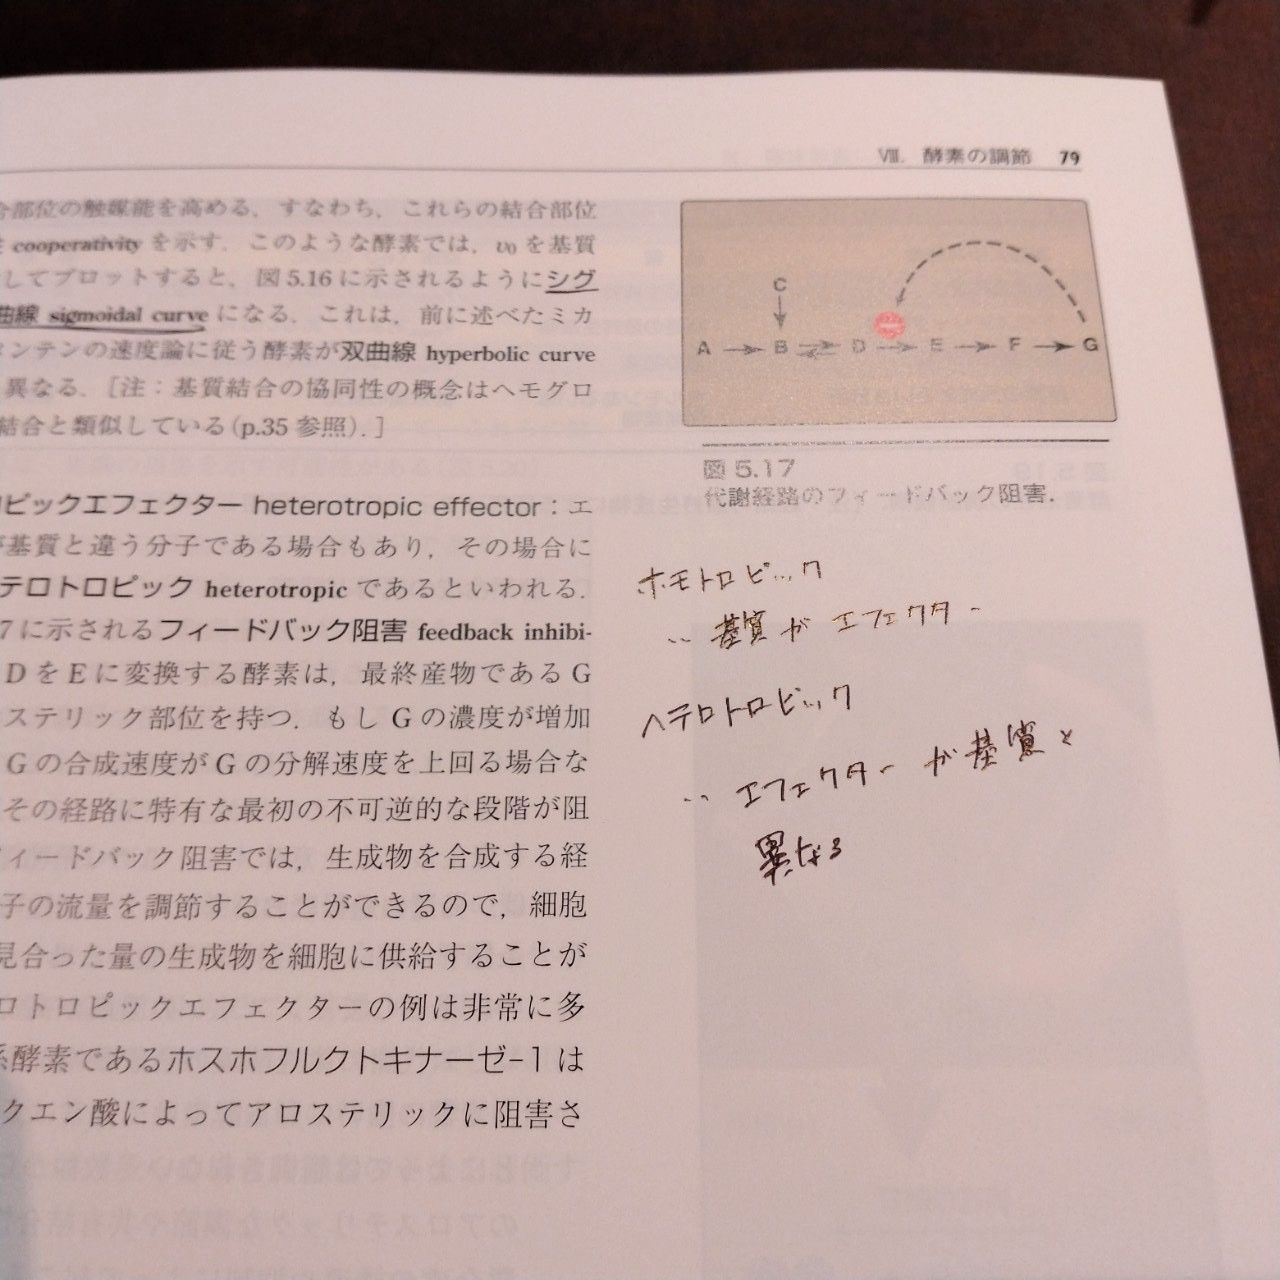 Ⅷ. 酵素の調節 79
合部位の触媒能を高める．すなわち，これらの結合部位
cooperativity を示す．このような酵素では，v₀ を基質
してプロットすると，図 5.16 に示されるようにシグ
曲線 sigmoidal curve になる．これは，前に述べたミカ
ンテンの速度論に従う酵素が双曲線 hyperbolic curve
異なる．［注：基質結合の協同性の概念はヘモグロ
結合と類似している(p.35 参照)．］
ロピックエフェクター heterotropic effector：エ
が基質と違う分子である場合もあり，その場合に
テロトロピック heterotropic であるといわれる．
7 に示されるフィードバック阻害 feedback inhibi-
D を E に変換する酵素は，最終産物である G
ステリック部位を持つ．もし G の濃度が増加
G の合成速度が G の分解速度を上回る場合な
その経路に特有な最初の不可逆的な段階が阻
ィードバック阻害では，生成物を合成する経
子の流量を調節することができるので，細胞
見合った量の生成物を細胞に供給することが
ロトロピックエフェクターの例は非常に多
系酵素であるホスホフルクトキナーゼ-1 は
クエン酸によってアロステリックに阻害さ
C
A B D E F G
図 5.17
代謝経路のフィードバック阻害．
ホモトロピック
‥ 基質が エフェクター
ヘテロトロピック
‥ エフェクターが基質と
異なる